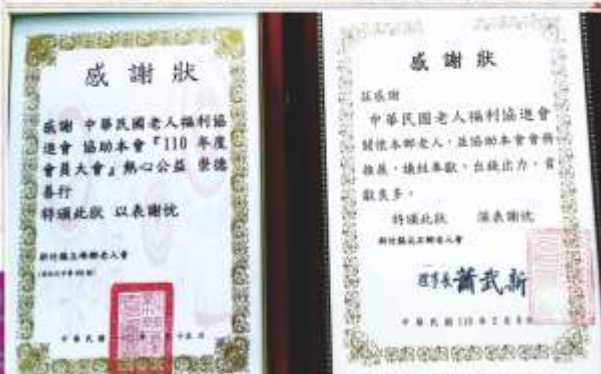 感謝狀
感謝 中華民國老人福利協
進會 協助本會『110 年度
會員大會』熱心公益 崇德
善行
特頒此狀 以表謝忱
感謝狀
茲感謝
中華民國老人福利協進會
關懷本鄉老人，並協助本會會務
推展，犧牲奉獻、出錢出力，貢
獻良多。
特頒此狀 藉表謝忱
新竹縣尖石鄉老人會
理事長
中華民國110年2月